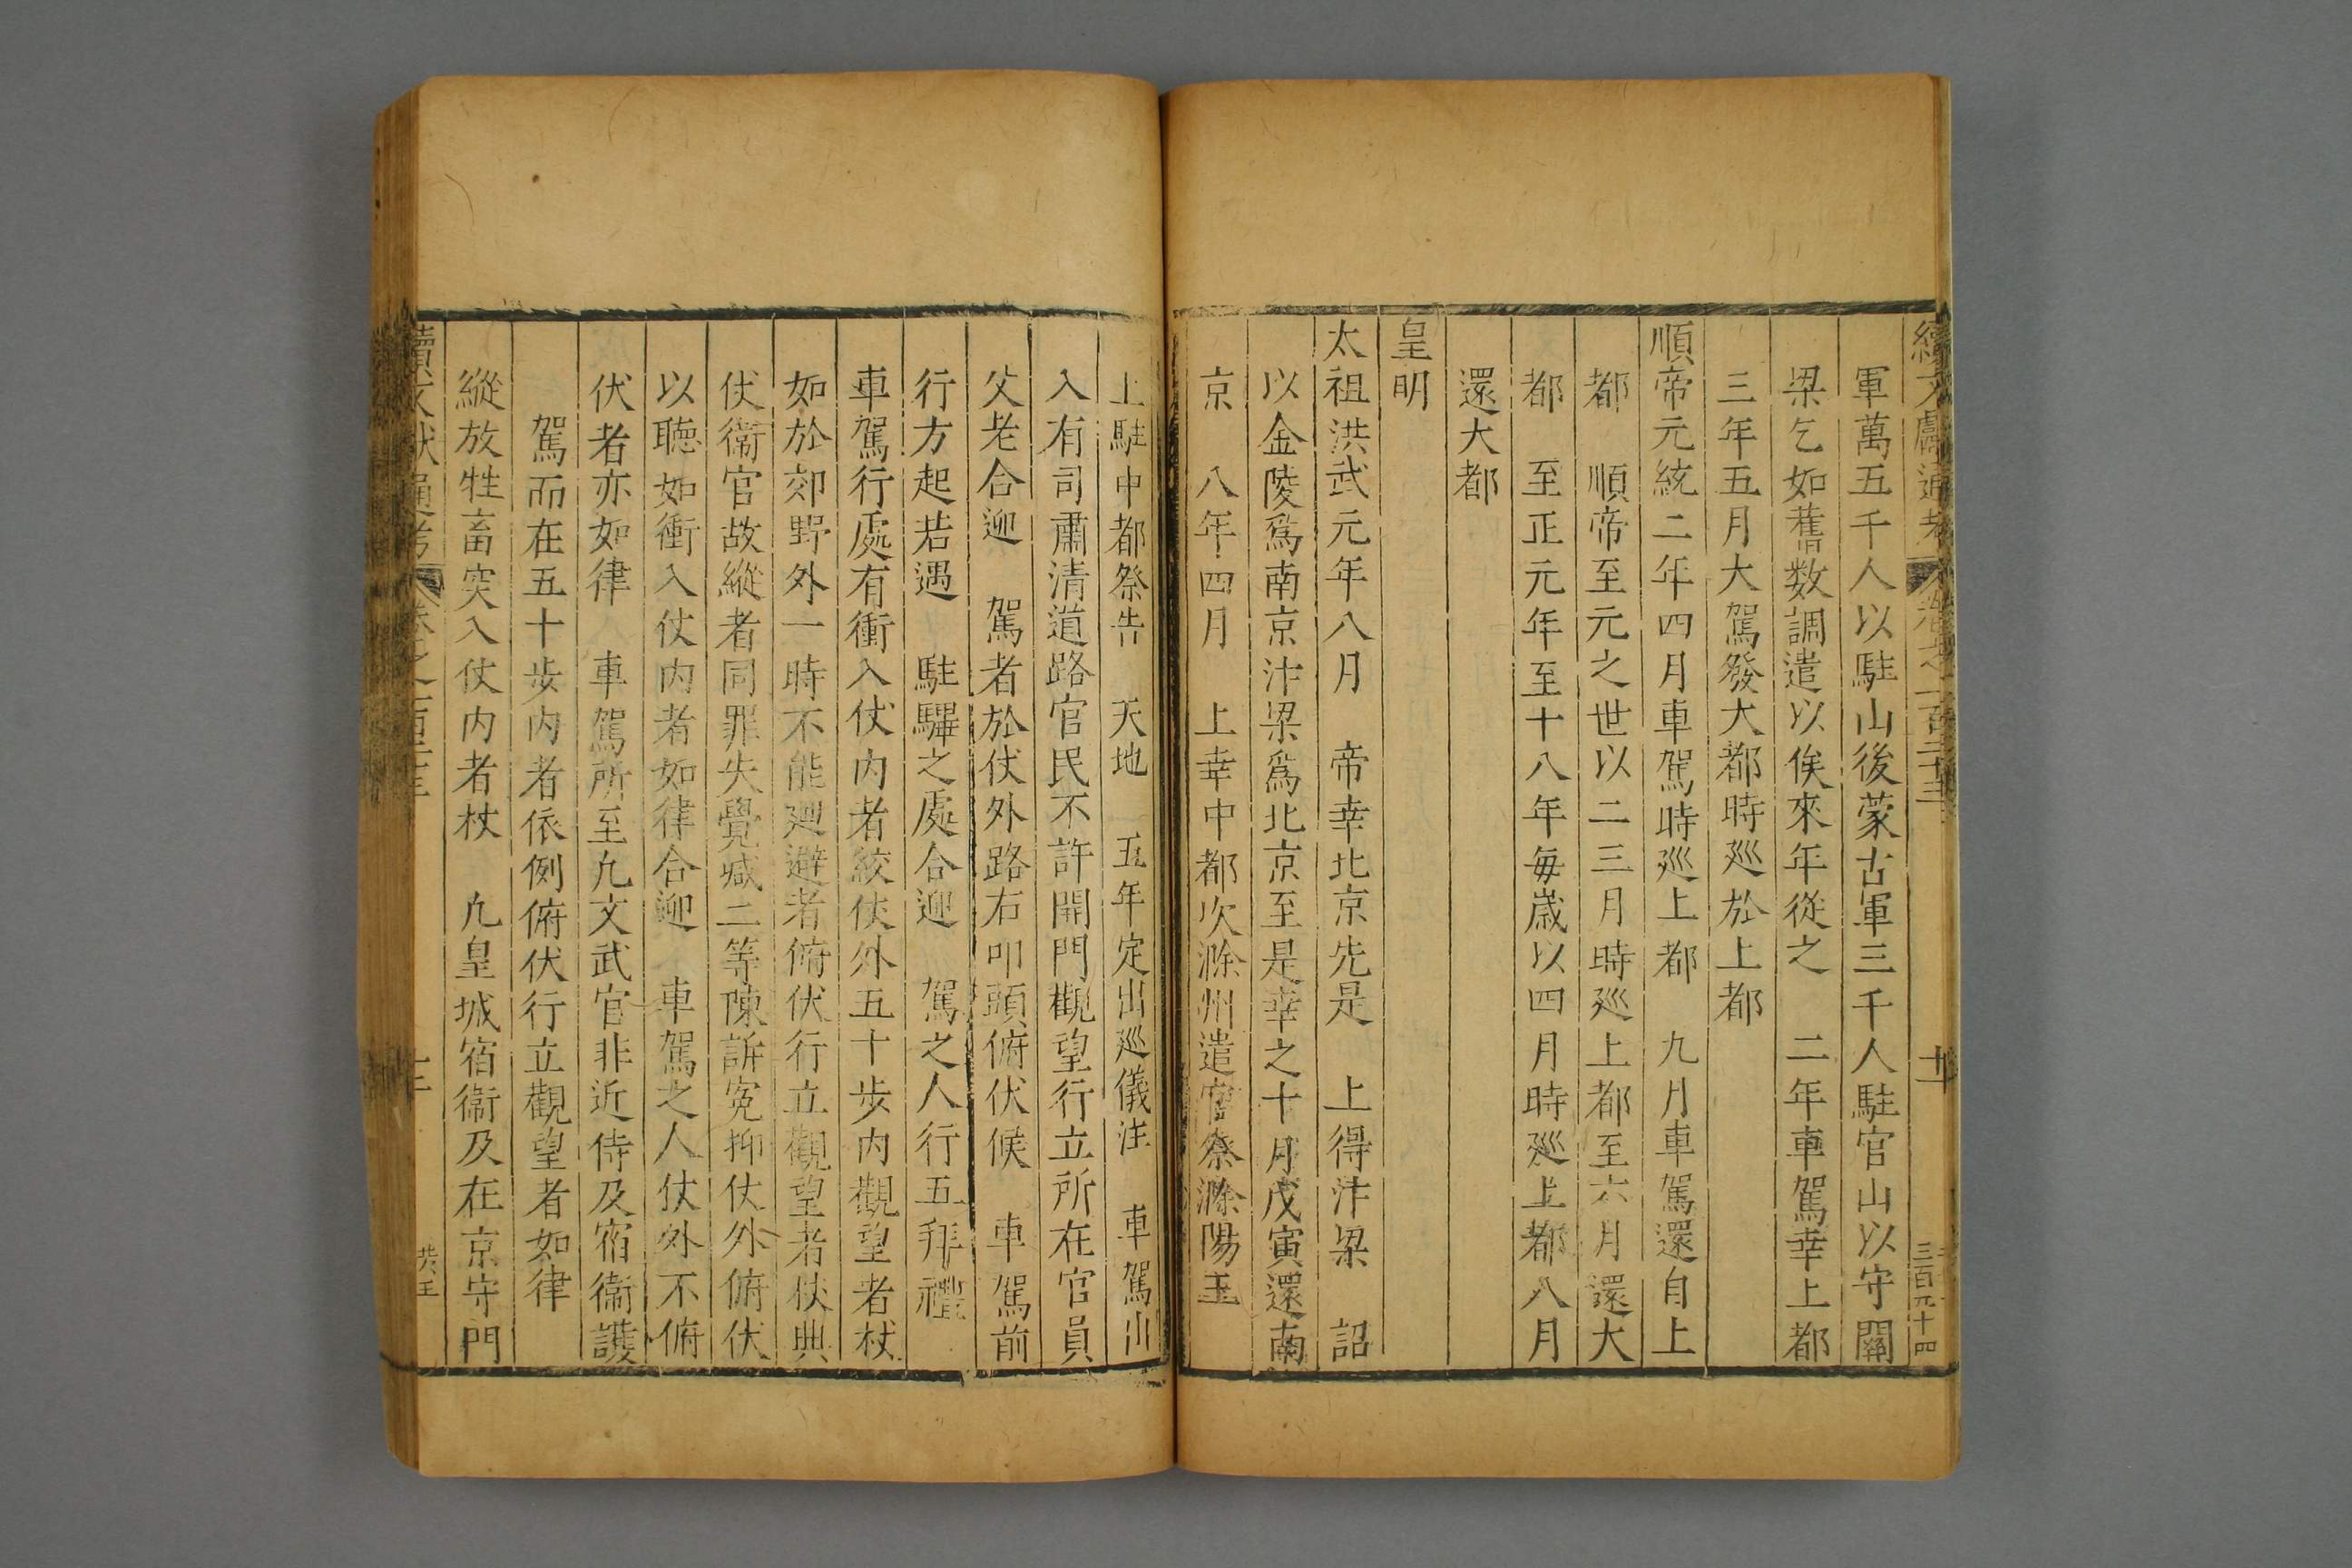 續文獻通考 卷之一百二十三 十一
軍萬五千人以駐山後蒙古軍三千人駐官山以守關
梁乞如舊数調遣以俟來年從之 二年車駕幸上都
三年五月大駕發大都時廵於上都
順帝元統二年四月車駕時廵上都 九月車駕還自上
都 順帝至元之世以二三月時廵上都至六月還大
都 至正元年至十八年每歲以四月時廵上都八月
還大都
皇明
太祖洪武元年八月 帝幸北京先是 上得汴梁 詔
以金陵爲南京汴梁爲北京至是幸之十月戊寅還南
京 八年四月 上幸中都次滁州遣官祭滁陽王
上駐中都祭告 天地 五年定出廵儀注 車駕出
入有司肅清道路官民不許開門觀望行立所在官員
父老合迎 駕者於仗外路右叩頭俯伏候 車駕前
行方起若遇 駐驆之處合迎 駕之人行五拜禮
車駕行處有衝入仗内者絞仗外五十步内觀望者杖
如於郊野外一時不能廻避者俯伏行立觀望者杖典
仗衛官故縱者同罪失覺减二等陳訴寃抑仗外俯伏
以聴如衝入仗内者如律合迎 車駕之人仗外不俯
伏者亦如律 車駕所至凢文武官非近侍及宿衞護
駕而在五十步内者依例俯伏行立觀望者如律
縱放牲畜突入仗内者杖 凢皇城宿衞及在京守門
續文獻通考 卷之一百二十三